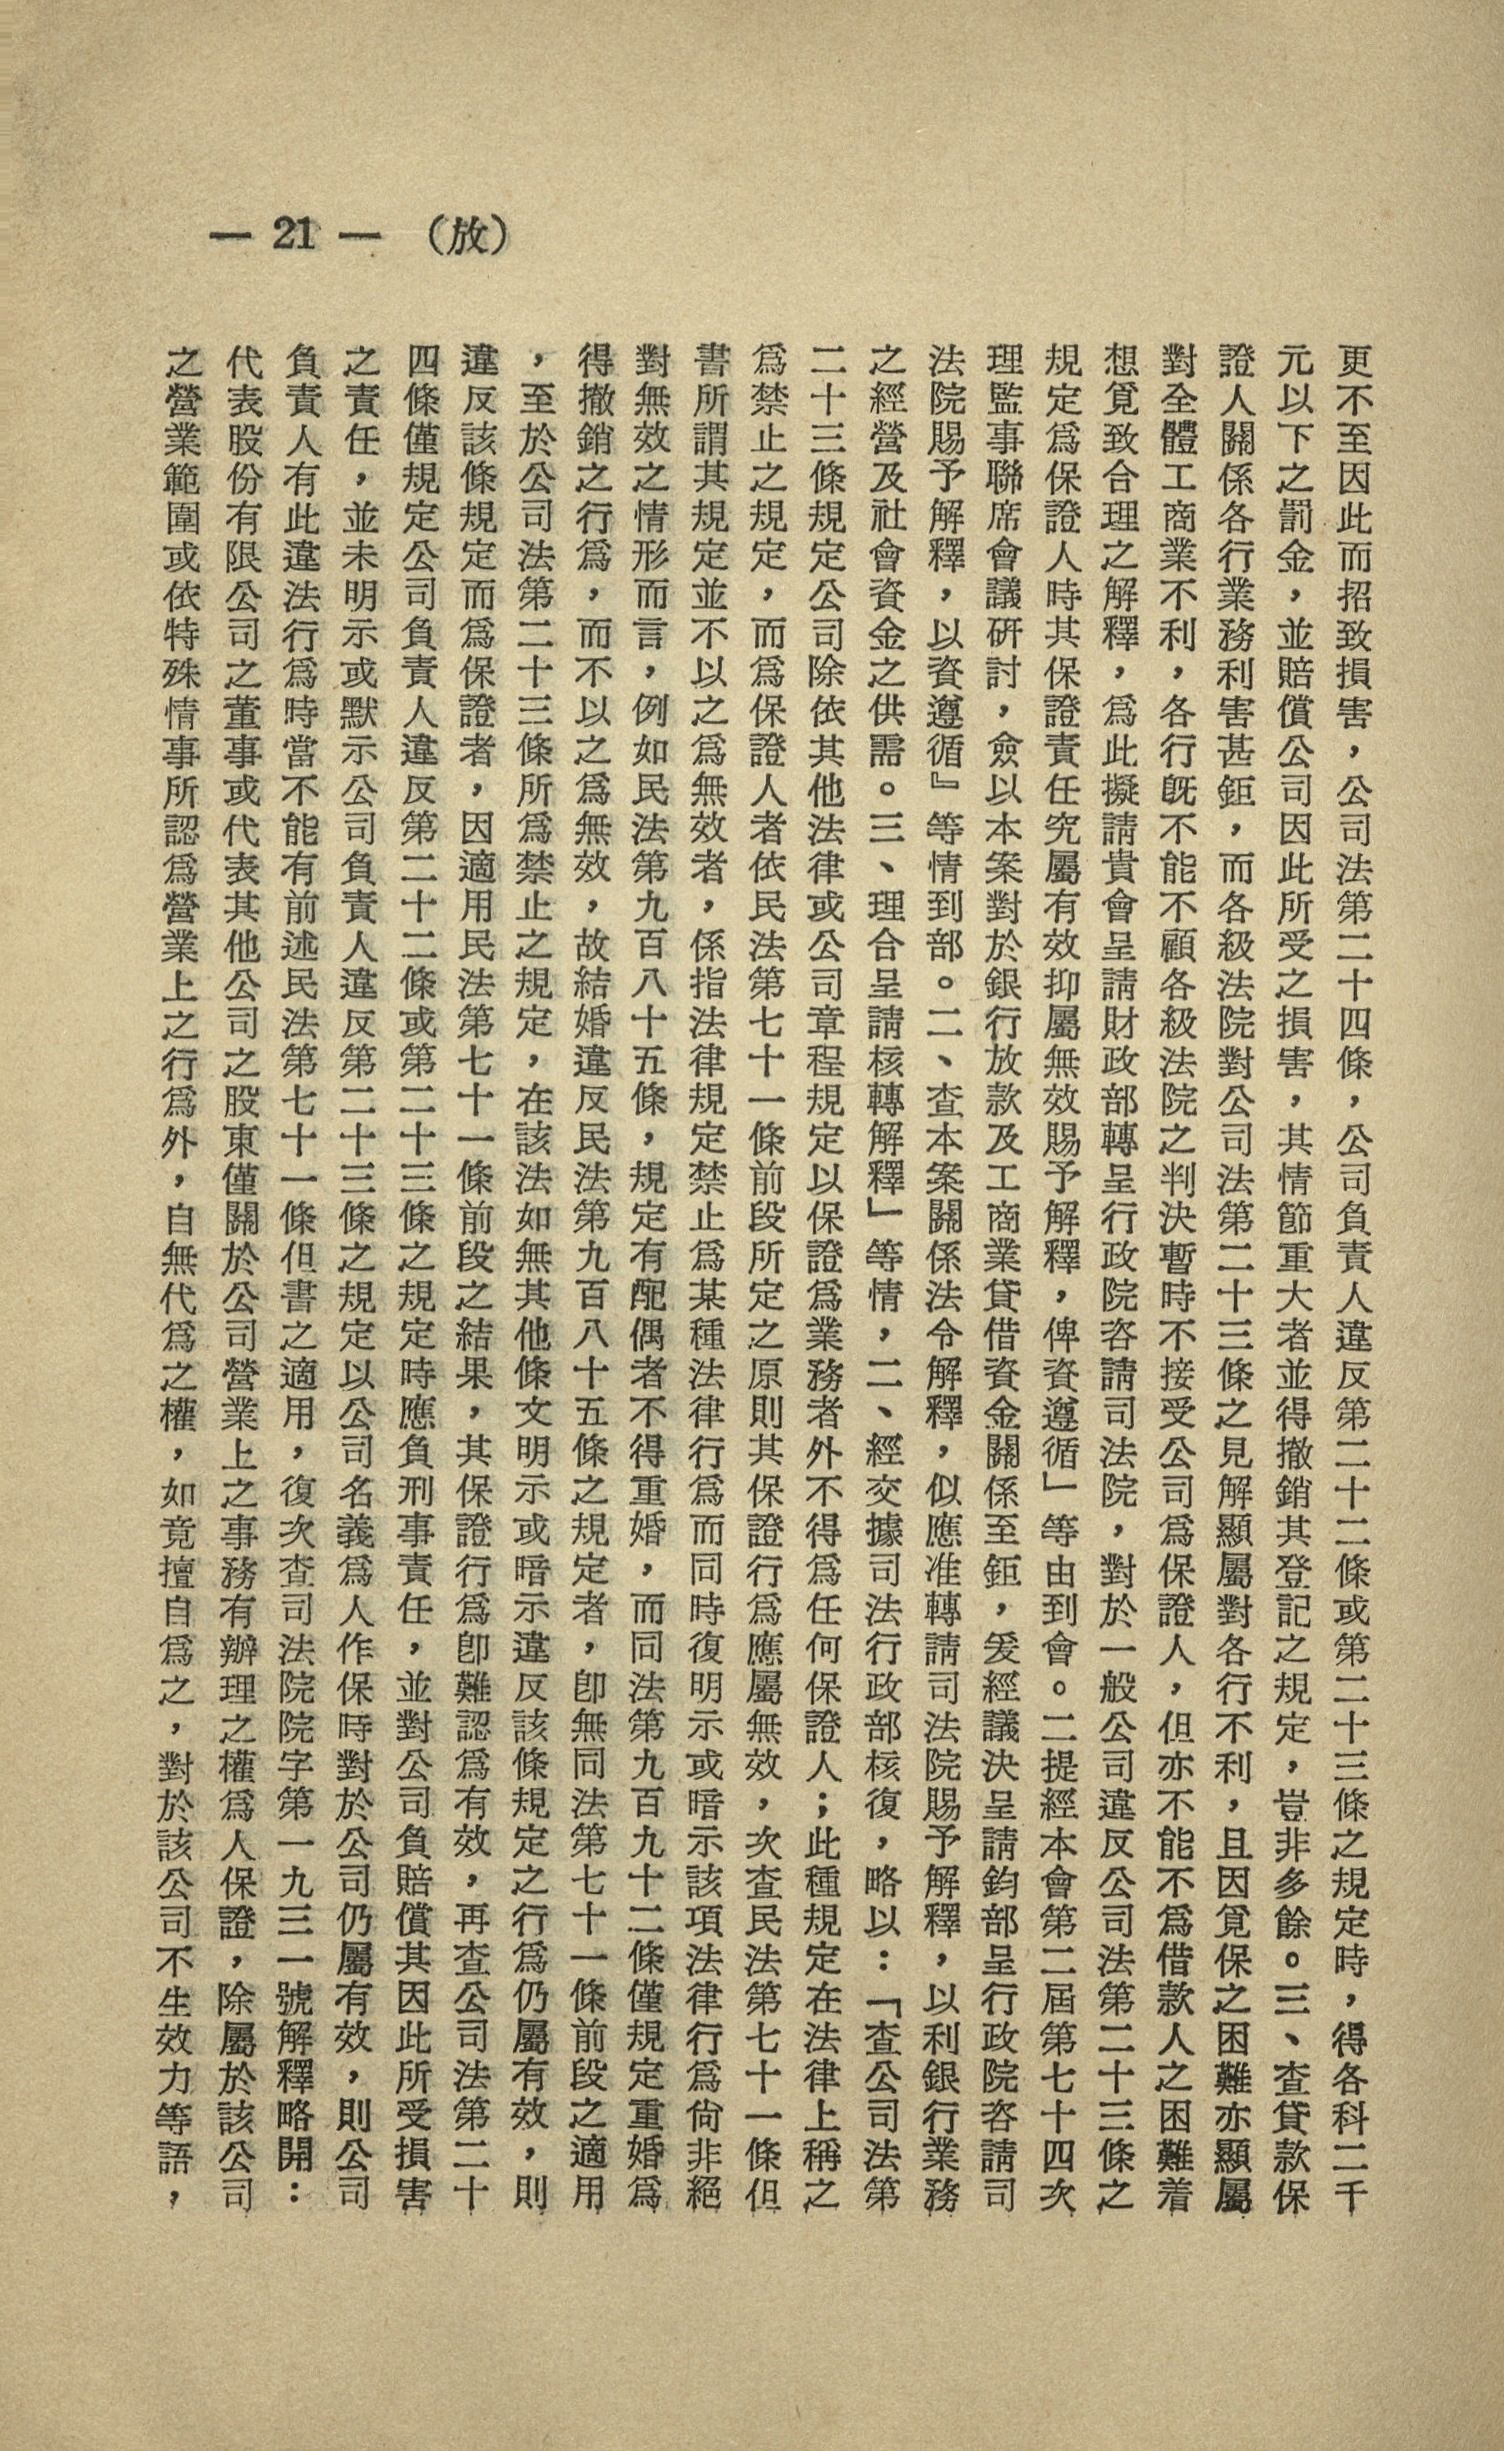 — 21 — （放）
更不至因此而招致損害，公司法第二十四條，公司負責人違反第二十二條或第二十三條之規定時，得各科二千
元以下之罰金，並賠償公司因此所受之損害，其情節重大者並得撤銷其登記之規定，豈非多餘。三、查貸款保
證人關係各行業務利害甚鉅，而各級法院對公司法第二十三條之見解顯屬對各行不利，且因覓保之困難亦顯屬
對全體工商業不利，各行既不能不顧各級法院之判決暫時不接受公司為保證人，但亦不能不為借款人之困難着
想覓致合理之解釋，為此擬請貴會呈請財政部轉呈行政院咨請司法院，對於一般公司違反公司法第二十三條之
規定為保證人時其保證責任究屬有效抑屬無效賜予解釋，俾資遵循」等由到會。二提經本會第二屆第七十四次
理監事聯席會議研討，僉以本案對於銀行放款及工商業貸借資金關係至鉅，爰經議決呈請鈞部呈行政院咨請司
法院賜予解釋，以資遵循』等情到部。二、查本案關係法令解釋，似應准轉請司法院賜予解釋，以利銀行業務
之經營及社會資金之供需。三、理合呈請核轉解釋」等情，二、經交據司法行政部核復，略以：「查公司法第
二十三條規定公司除依其他法律或公司章程規定以保證為業務者外不得為任何保證人；此種規定在法律上稱之
為禁止之規定，而為保證人者依民法第七十一條前段所定之原則其保證行為應屬無效，次查民法第七十一條但
書所謂其規定並不以之為無效者，係指法律規定禁止為某種法律行為而同時復明示或暗示該項法律行為尚非絕
對無效之情形而言，例如民法第九百八十五條，規定有配偶者不得重婚，而同法第九百九十二條僅規定重婚為
得撤銷之行為，而不以之為無效，故結婚違反民法第九百八十五條之規定者，即無同法第七十一條前段之適用
，至於公司法第二十三條所為禁止之規定，在該法如無其他條文明示或暗示違反該條規定之行為仍屬有效，則
違反該條規定而為保證者，因適用民法第七十一條前段之結果，其保證行為即難認為有效，再查公司法第二十
四條僅規定公司負責人違反第二十二條或第二十三條之規定時應負刑事責任，並對公司負賠償其因此所受損害
之責任，並未明示或默示公司負責人違反第二十三條之規定以公司名義為人作保時對於公司仍屬有效，則公司
負責人有此違法行為時當不能有前述民法第七十一條但書之適用，復次查司法院院字第一九三一號解釋略開：
代表股份有限公司之董事或代表其他公司之股東僅關於公司營業上之事務有辦理之權為人保證，除屬於該公司
之營業範圍或依特殊情事所認為營業上之行為外，自無代為之權，如竟擅自為之，對於該公司不生效力等語，